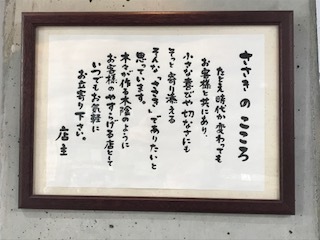 ささきのこころ
たとえ時代が変わっても
お客様と共にあり、
小さな喜びや切なさにも
そっと寄り添える
そんな、“ささき”でありたいと
思っています。
木々が作る木陰のように
お客様のやすらげる店として
いつでもお気軽に
お立寄り下さい。
店主